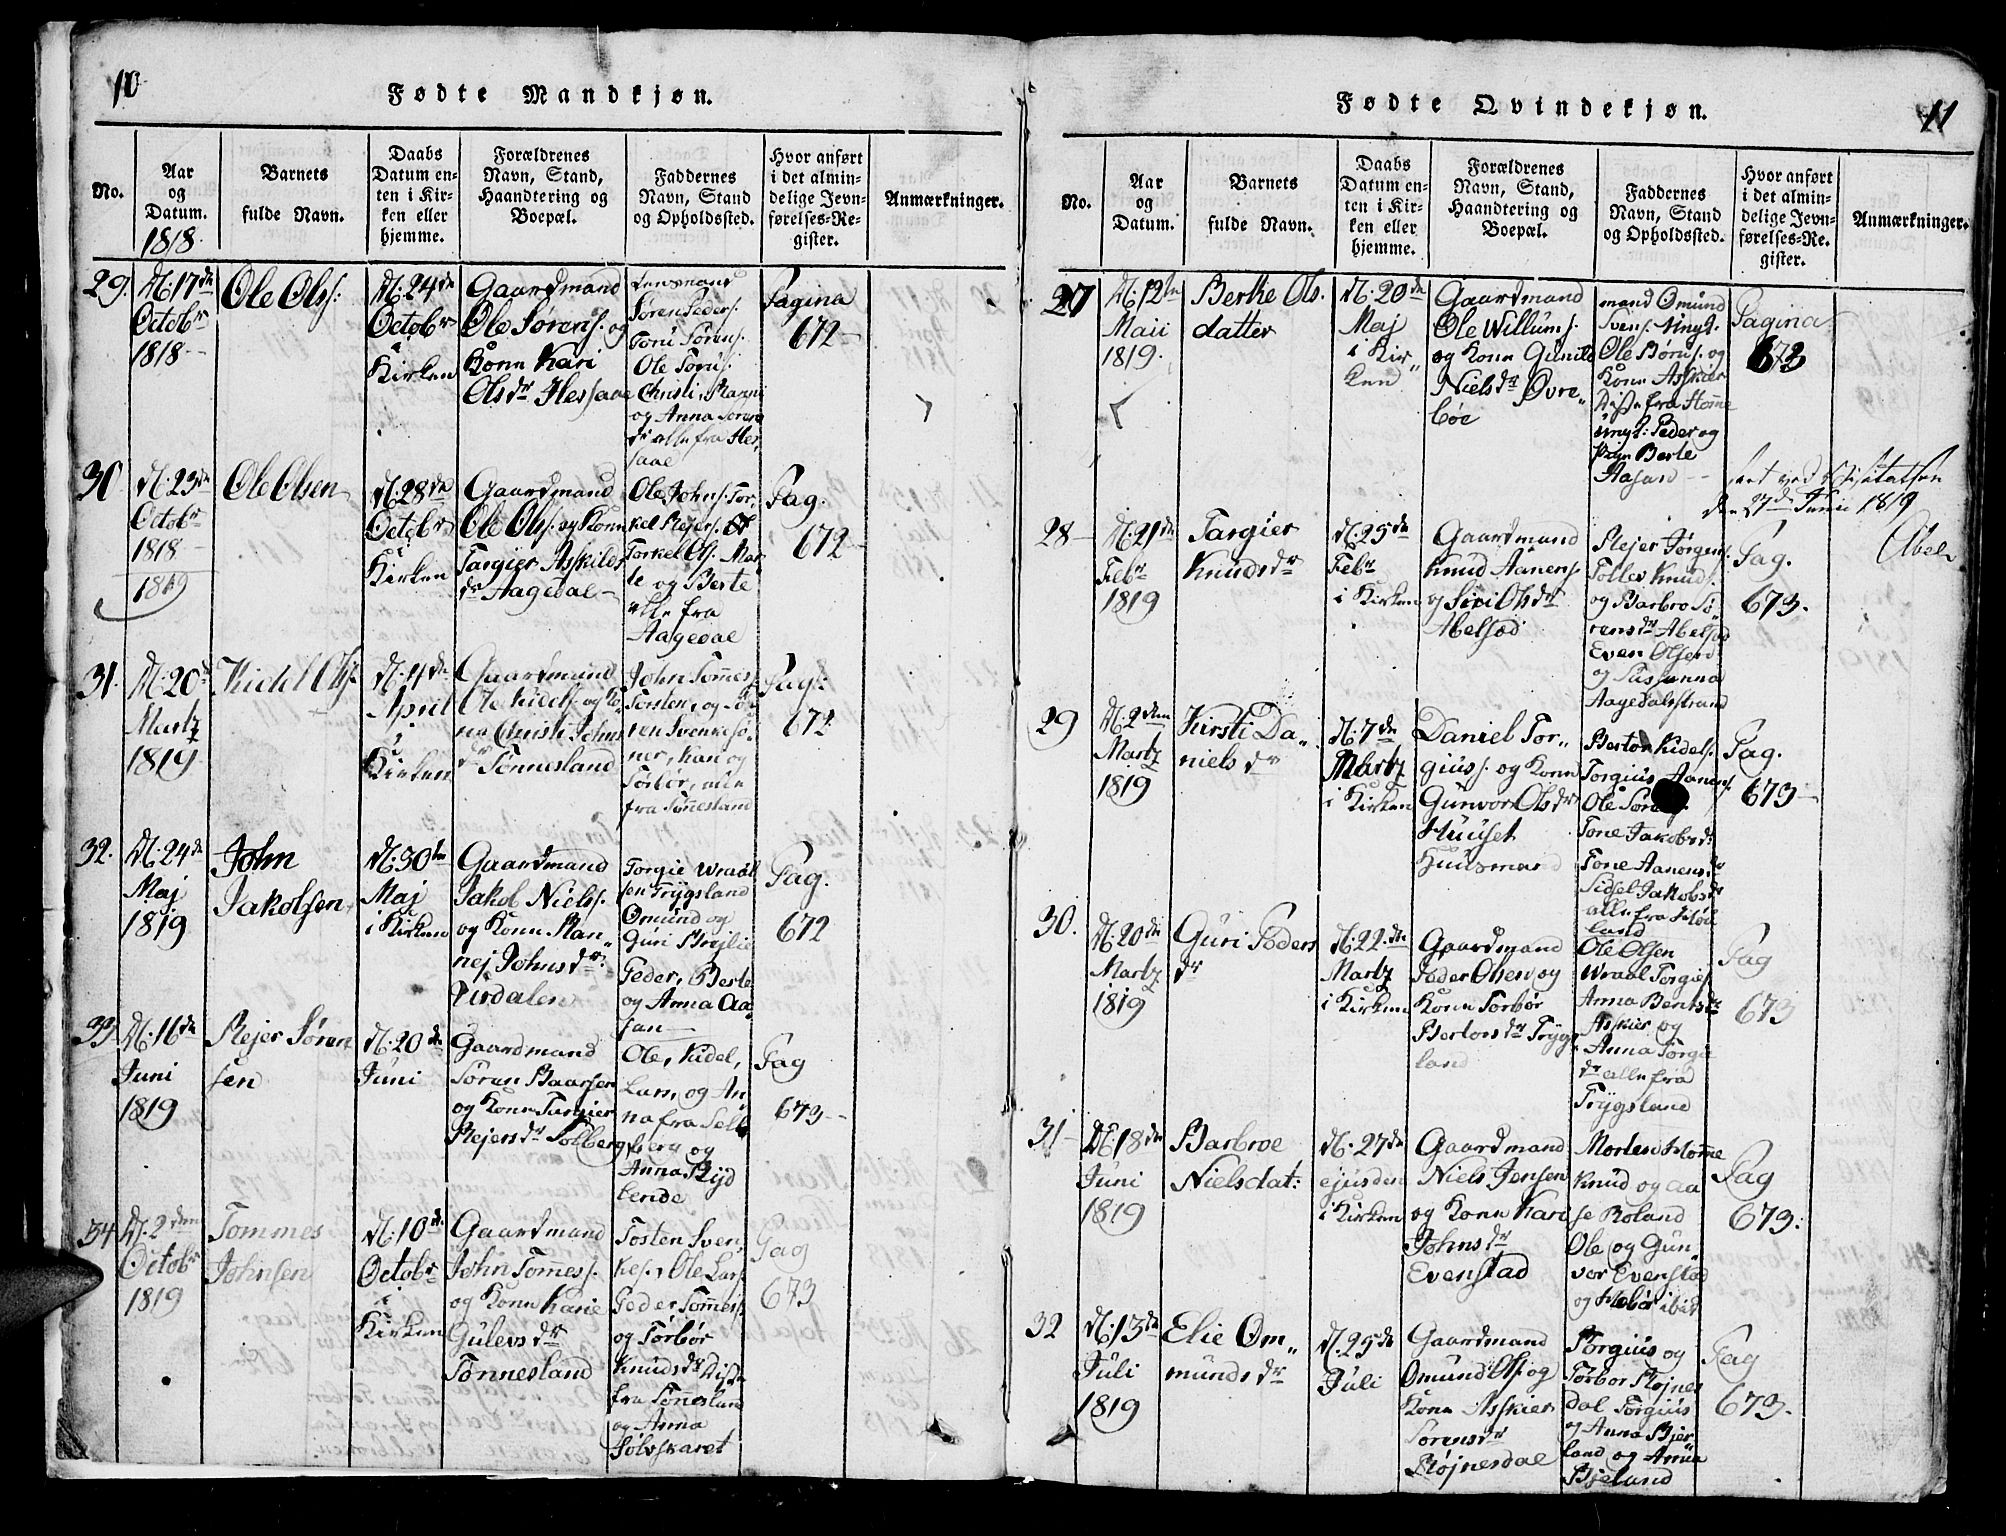 10
Fødte Mandkjøn.
No.
Aar
og
Datum.
1818.
Barnets
fulde Navn.
Daabs
Datum en-
ten i Kir-
ken eller
hjemme.
Forældrenes
Navn, Stand,
Haandtering og
Boepæl.
Faddernes
Navn, Stand
og Opholdssted.
Hvor anført
i det almin-
delige Jevn-
førelses-Re-
gister.
Anmærkninger.
29.
D. 17de
Octobr
1818
Ole Ols:
D. 24de
Octobr
i
Kirken
Gaardmand
Ole Sørens. og
Kone Kari
Olsdr Hessaae
Lensmand
Søren Peders.
Toni Sørens.
Ole Sørens.
Christi,
og Anna Sørens
dr alle fra Hes
saae
Pagina
672
30
D. 23de
Octobr
1818
1819
Ole Olsen
D. 28de
Octobr
i
Kirken
Gaardmand
Ole Ols. og Kone
Targier Askilds
dr Aagedal
Ole Johns. Tor,
kel Rejers.
Torkel Ols. Mar
te og Berte
alle fra
Aagedal
Pag.
672
31.
D. 20de
Martz
1819
Kidel Ols.
D. 4de
April
i
Kirken
Gaardmand
Ole Kidels. og Ko,
ne Christi Johns
dr Tonnesland
John Tommes.
Torsten, og Sø,
ren Svenkesø,
ner, Kari og
Torbor, alle
fra Tonnesland
Pag:
672
32.
D. 24de
Maj
1819
John
Jakobsen
D. 30te
Maj
i Kirken
Gaardmand
Jakob Niels.
og Kone Ran,
nej Johnsdr.
Virdalen
Torgie Wraal
sen Trygsland
Omund og
Guri
Peder, Berte
og Anna Aa,
san
Pag.
672
33.
D. 16de
Juni
1819
Rejer Søren
sen
D. 20de
Juni
Gaardmand
Søren Baarsen
og Kone Targier
Rejersdr Solberg
Ole, Kidel,
Lars, og An,
na fra Sol
berg og
Anna Ryd
lende
Pag
673
34
D. 2den
Octobr
1819
Tommes
Johnsen
D. 10de
Octobr
i
Kirken
Gaardmand
John Tommes.
og Kone Karie
Gulevsdr
Tonnesland
Tosten Sven,
kes., Ole Lars.
Peder Tommes.
og Torbør
Knudsdr Disse
fra Tonnesland
og Anna
Sølvskaret
Pag
673
11
Fødte Qvindekjøn.
No.
Aar
og
Datum.
Barnets
fulde Navn.
Daabs
Datum en-
ten i Kir-
ken eller
hjemme.
Forældrenes
Navn, Stand,
Haandtering og
Boepæl.
Faddernes
Navn, Stand
og Opholdssted.
Hvor anført
i det almin-
delige Jevn-
førelses-Re-
gister.
Anmærkninger.
27
D. 12te
Maii
1819.
Berthe Ols.
datter
D. 20de
Maj
i Kir
ken
Gaardmand
Ole Willums.
og Kone Gunild
Nielsdr Øvre,
bøe
mand Omund
Svens. Ungk.
Ole Børus. og
Kone Askier
Disse fra Homme
Ungk: Peder og
Berte
Aasan
Pagina
673
ved Visitatsen
den 27de Junii 1819
Abel
28
D. 21de
Febr
1819
Targier
Knudsdr
D. 25de
Febr
i Kirken
Gaardmand
Knud Aanens.
og Siri Olsdr
Abelsæd
Rejer Jørgens.
Tollev Knuds.
og Barbro Sø,
rensdr Abelsæd
Even Olsen
og Susanna
Aagedalsstrand
Pag.
673.
29
D. 2den
Martz
1819
Kirsti Da,
nielsdr
D. 7de
Martz
i Kirken
Daniel Tor,
gius. og Kone
Gunvor Olsdr
Huuset
Huusmand
Bertor Kidels.
Torgius Aanens.
Ole
Tone Jakobsdr
Tone Aanensdr
Sidsel Jakobsdr
alle fra
land
Pag.
673
30.
D. 20de
Martz
1819
Guri Peders
dr
D. 22de
Martz
i Kirken
Gaardmand
Peder Olsen og
Kone Torbør
Bertorsdr Trygs
land
Ole Olsen
Wraal Torgius.
Anna Berntsdr
Askier og
Anna Torgie
dr alle fra
Trygsland
Pag
673
31
D. 18de
Juni
1819
Barbroe
Nielsdat:
D. 27de
ejusdem
i Kirken
Gaardmand
Niels Jensen
og Kone Kari
Johnsdr
Evenstad
Morten Homme
Knud og Aa
se Roland
Ole og Gun,
vor Evenstad
og ibid
Pag
673.
32
D. 13de
Juli
1819
Elie Om,
mundsdr
D. 25de
Juli
Gaardmand
Omund Ols. og
Kone Askier
Sørensdr
Røjnesdal
Torgius og
Torbor Røjnes
dal Torgius
og Anna Bjer
land og Anna
Bjeland
Pag
673.